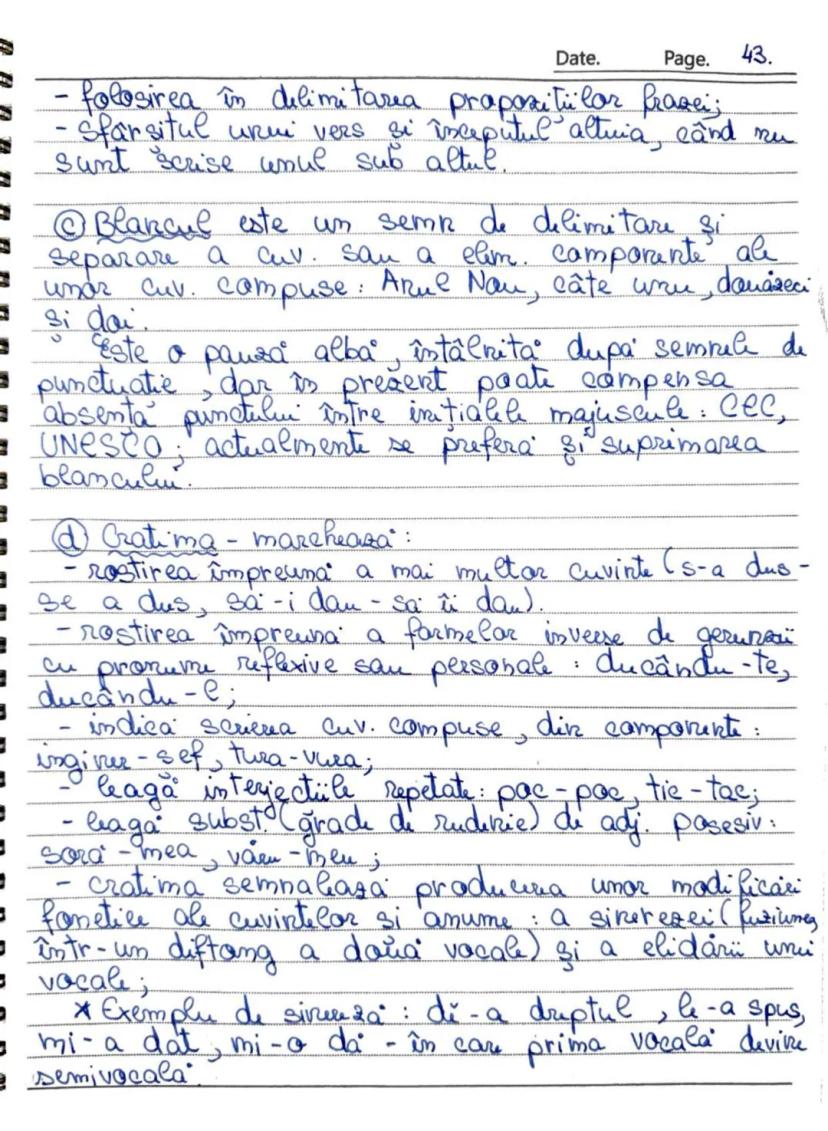 Date. Page. 43.
- folosirea în delimitarea propozițiilor frazei;
- sfârșitul unui vers și începutul altuia, când nu
sunt scrise unul sub altul.
ⓒ Blancul este un semn de delimitare și
separare a cuv. sau a elem. componente ale
unor cuv. compuse: Anul Nou, câte unu, douăzeci
și doi.
Este o pauză albă, întâlnită după semnele de
punctuație, dar în prezent poate compensa
absența punctului între inițialele majuscule: CEC,
UNESCO; actualmente se preferă și suprimarea
blancului.
ⓓ Cratima - marchează:
- rostirea împreună a mai multor cuvinte (s-a dus -
se a dus, să-i dau - să îi dau).
- rostirea împreună a formelor inverse de gerunzii
cu pronume reflexive sau personale: ducându-te,
ducându-l;
- indică scrierea cuv. compuse, din componente:
inginer-șef, tura-vura;
- leagă interjecțiile repetate: poc-poc, tic-tac;
- leagă subst. (grade de rudenie) de adj. posesiv:
soră-mea, văru-meu;
- cratima semnalează producerea unor modificări
fonetice ale cuvintelor și anume: a sinerezei (fuziunea
într-un diftong a două vocale) și a elidării unei
vocale;
* Exemplu de sinereză: de-a dreptul, le-a spus,
mi-a dat, mi-o dă - în care prima vocală devine
semivocală.